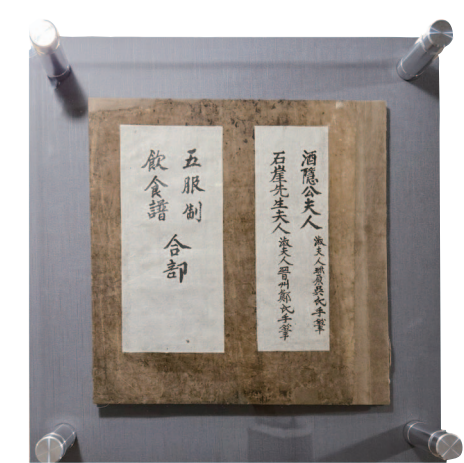 酒隱公夫人 淑夫人珍原吳氏手筆
石崖先生夫人 淑夫人晉州鄭氏手筆
五服制
飮食譜
合部